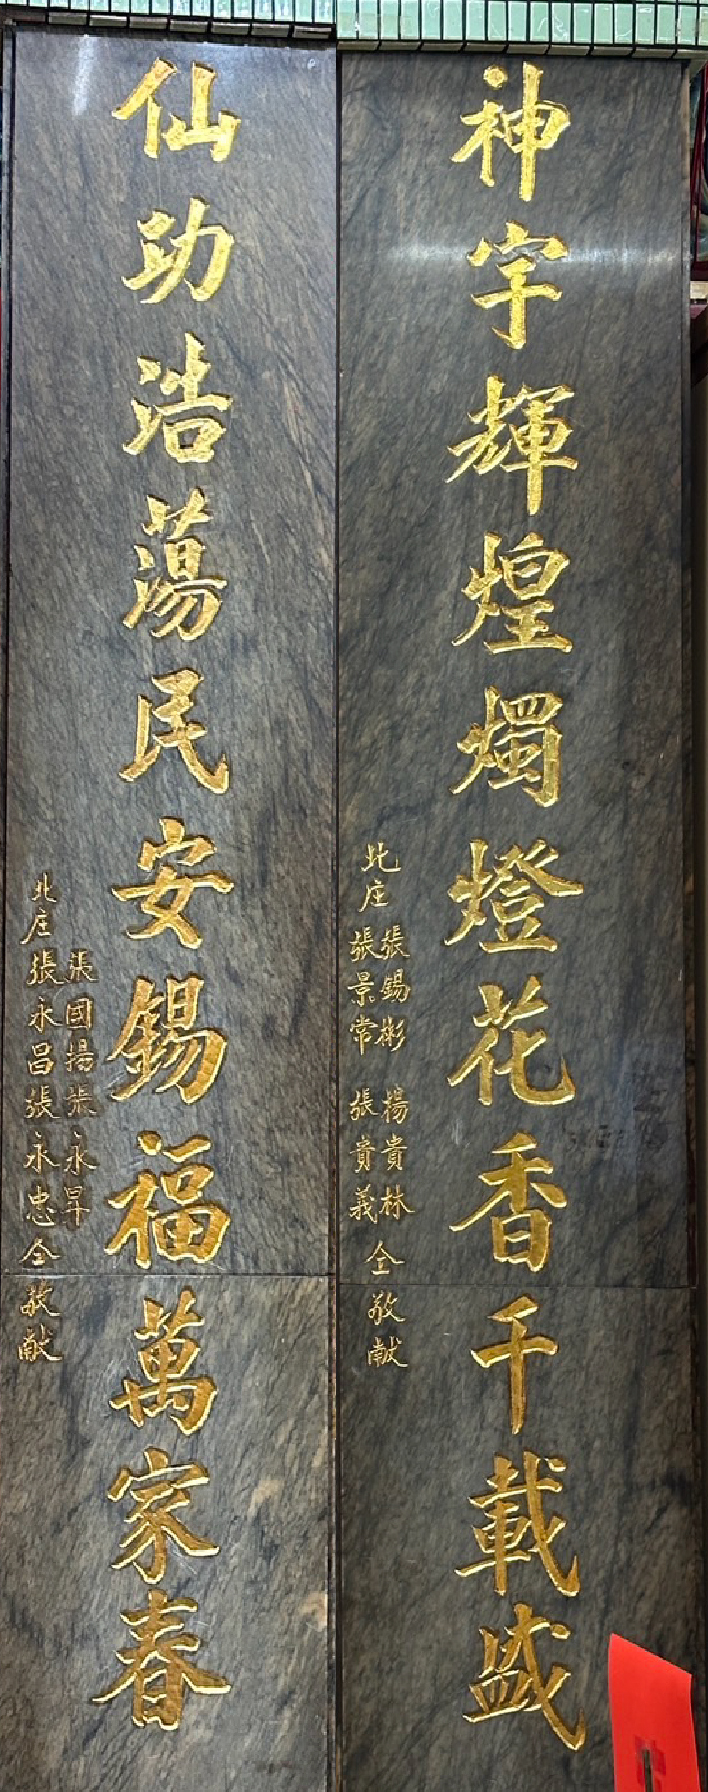 神宇輝煌燭燈花香千載盛
北庄
張錫彬 楊貴林
張景常 張貴義
仝敬献
仙功浩蕩民安錫福萬家春
北庄
張國揚張永昇
張永昌張永忠
仝敬献